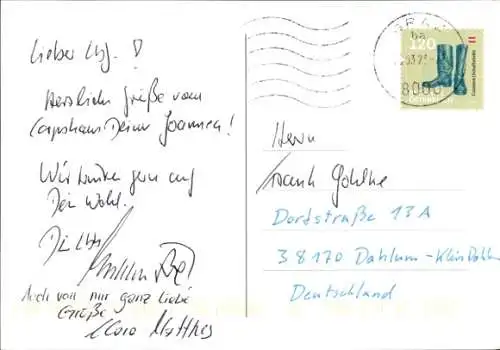 Lieber Lbg. !
Herzliche Grüße vom
Corpshaus Deiner Joannea!
Wir trinken gern auf
Dein Wohl.
Die Lbg
Auch von mir ganz liebe
Grüße
Clara Matthes
120
GRAZ
8000
ÖSTERREICH
Herrn
Frank Gohlke
Dorfstraße 13A
38170 Dahlum-Klein Dahlum
Deutschland